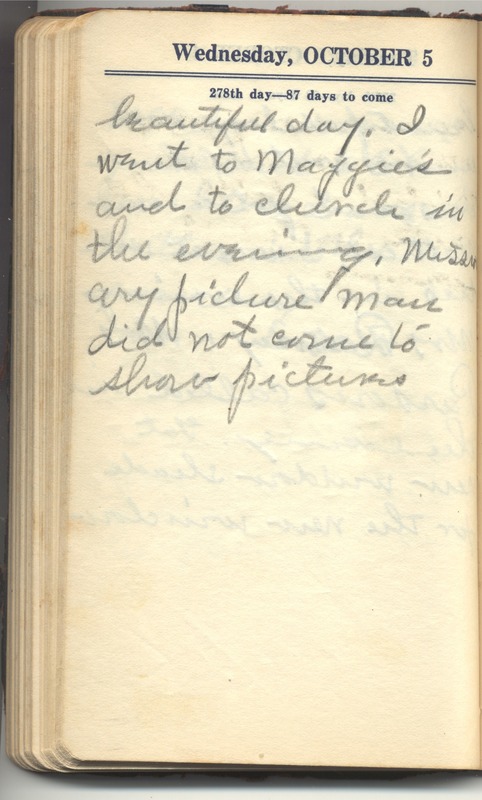 Wednesday, OCTOBER 5
278th day—87 days to come
beautiful day. I
went to Maggie's
and to church in
the evening.Ission
ary picture man
did not come to
show pictures